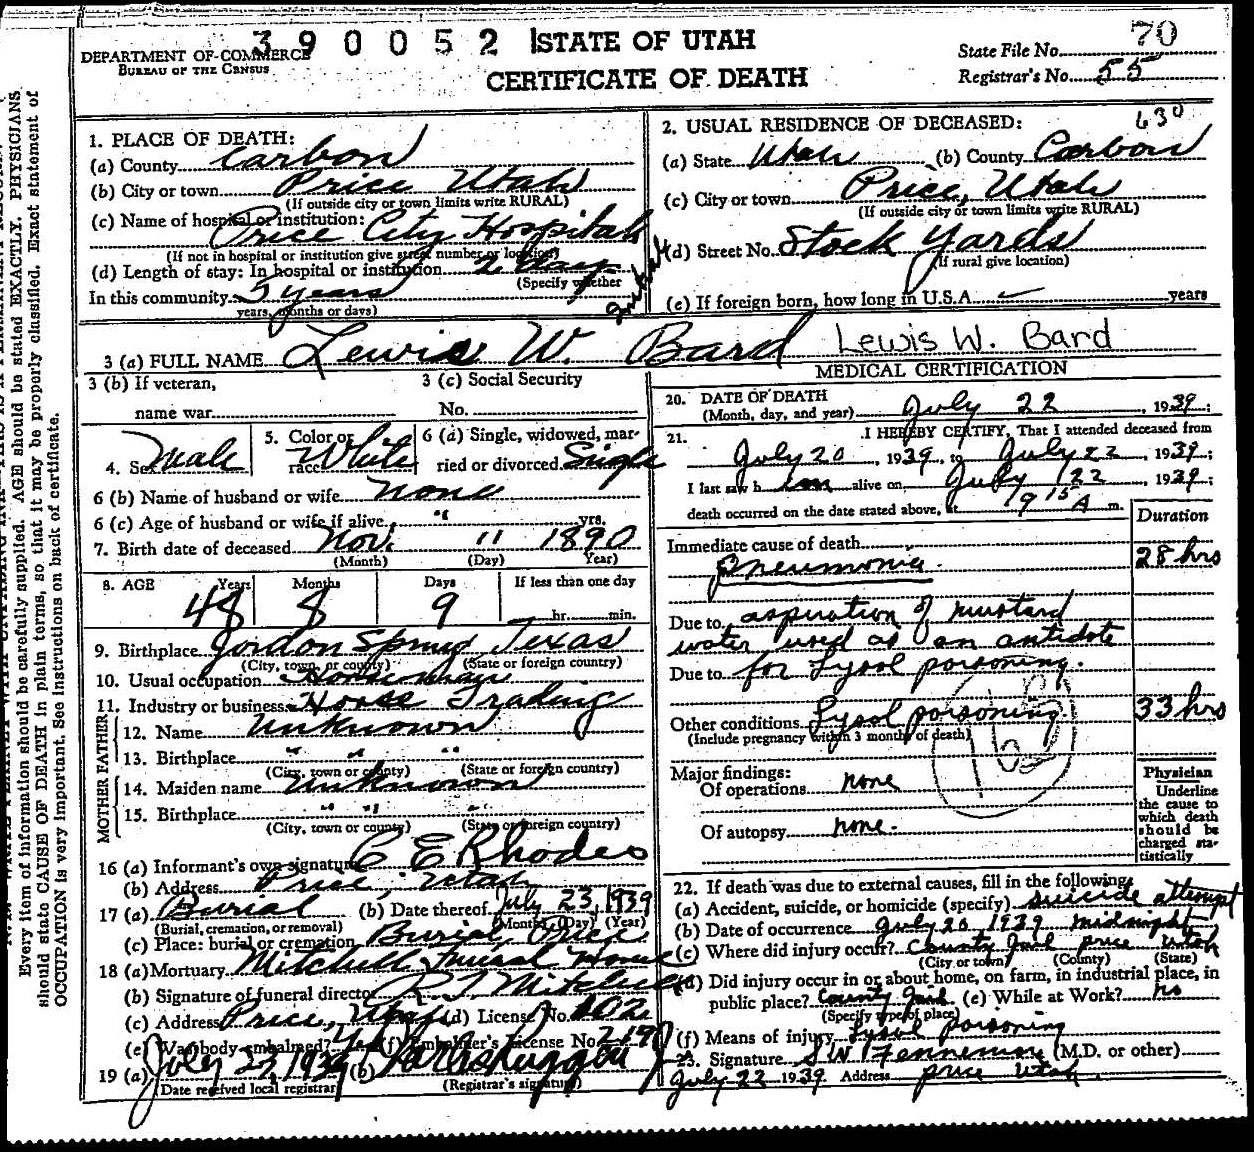 390052
DEPARTMENT OF COMMERCE
BUREAU OF THE CENSUS
STATE OF UTAH
CERTIFICATE OF DEATH
State File No. 70
Registrar's No. 55
Every item of information should be carefully supplied. AGE should be stated EXACTLY. PHYSICIANS
should state CAUSE OF DEATH in plain terms, so that it may be properly classified. Exact statement of
OCCUPATION is very important. See instructions on back of certificate.
1. PLACE OF DEATH:
(a) County Carbon
(b) City or town Price Utah
(If outside city or town limits write RURAL)
(c) Name of hospital or institution:
Price City Hospital
(If not in hospital or institution give street number or location)
(d) Length of stay: In hospital or institution 2 days
(Specify whether
In this community 5 years
years, months or days)
2. USUAL RESIDENCE OF DECEASED: 630
(a) State Utah (b) County Carbon
(c) City or town Price, Utah
(If outside city or town limits write RURAL)
(d) Street No. Stock Yards
(If rural give location)
(e) If foreign born, how long in U.S.A. years
3 (a) FULL NAME Lewis W. Bard Lewis W. Bard
3 (b) If veteran, 3 (c) Social Security
name war No.
4. Sex Male 5. Color or race White 6 (a) Single, widowed, married or divorced. Single
6 (b) Name of husband or wife none
6 (c) Age of husband or wife if alive " yrs.
7. Birth date of deceased Nov. 11 1890
(Month) (Day) Year)
8. AGE Years Months Days If less than one day
48 8 9 hr. min.
9. Birthplace Gordon Spring Texas
(City, town, or county) (State or foreign country)
10. Usual occupation Horseman
11. Industry or business Horse Trading
FATHER
12. Name Unknown
13. Birthplace " " "
(City, town or county) (State or foreign country)
MOTHER
14. Maiden name Unknown
15. Birthplace " " "
(City, town or county) (State or foreign country)
16 (a) Informant's own signature C E Rhodes
(b) Address Price, Utah
17 (a) Burial (b) Date thereof July 23, 1939
(Burial, cremation, or removal) (Month) (Day) (Year)
(c) Place: burial or cremation Burial Price
18 (a) Mortuary Mitchell Funeral Home
(b) Signature of funeral director R. J. Mitchell
(c) Address Price, Utah (d) License No. 102
(e) Was body embalmed? Yes (f) Embalmer's License No. 219
19 (a) July 27, 1939 (b)
(Date received local registrar) (Registrar's signature)
MEDICAL CERTIFICATION
20. DATE OF DEATH
(Month, day, and year) July 22, 1939;
21. I HEREBY CERTIFY, That I attended deceased from
July 20, 1939, to July 22, 1939;
I last saw him alive on July 22, 1939;
death occurred on the date stated above, at 9 15 A m.
Duration
Immediate cause of death
pneumonia 28 hrs
Due to aspiration of mustard
water used as an antidote
Due to for Lysol poisoning.
Other conditions Lysol poisoning 33 hrs
(Include pregnancy within 3 months of death)
Major findings:
Of operations none
Of autopsy none.
Physician
Underline
the cause to
which death
should be
charged sta-
tistically
22. If death was due to external causes, fill in the following:
(a) Accident, suicide, or homicide (specify) suicide attempt
(b) Date of occurrence July 20, 1939 midnight
(c) Where did injury occur? County Jail price Utah
(City or town) (County) (State)
(d) Did injury occur in or about home, on farm, in industrial place, in
public place? County Jail (e) While at Work? no
(Specify type of place)
(f) Means of injury Lysol poisoning
23. Signature (M.D. or other)
July 22 1939 Address price Utah